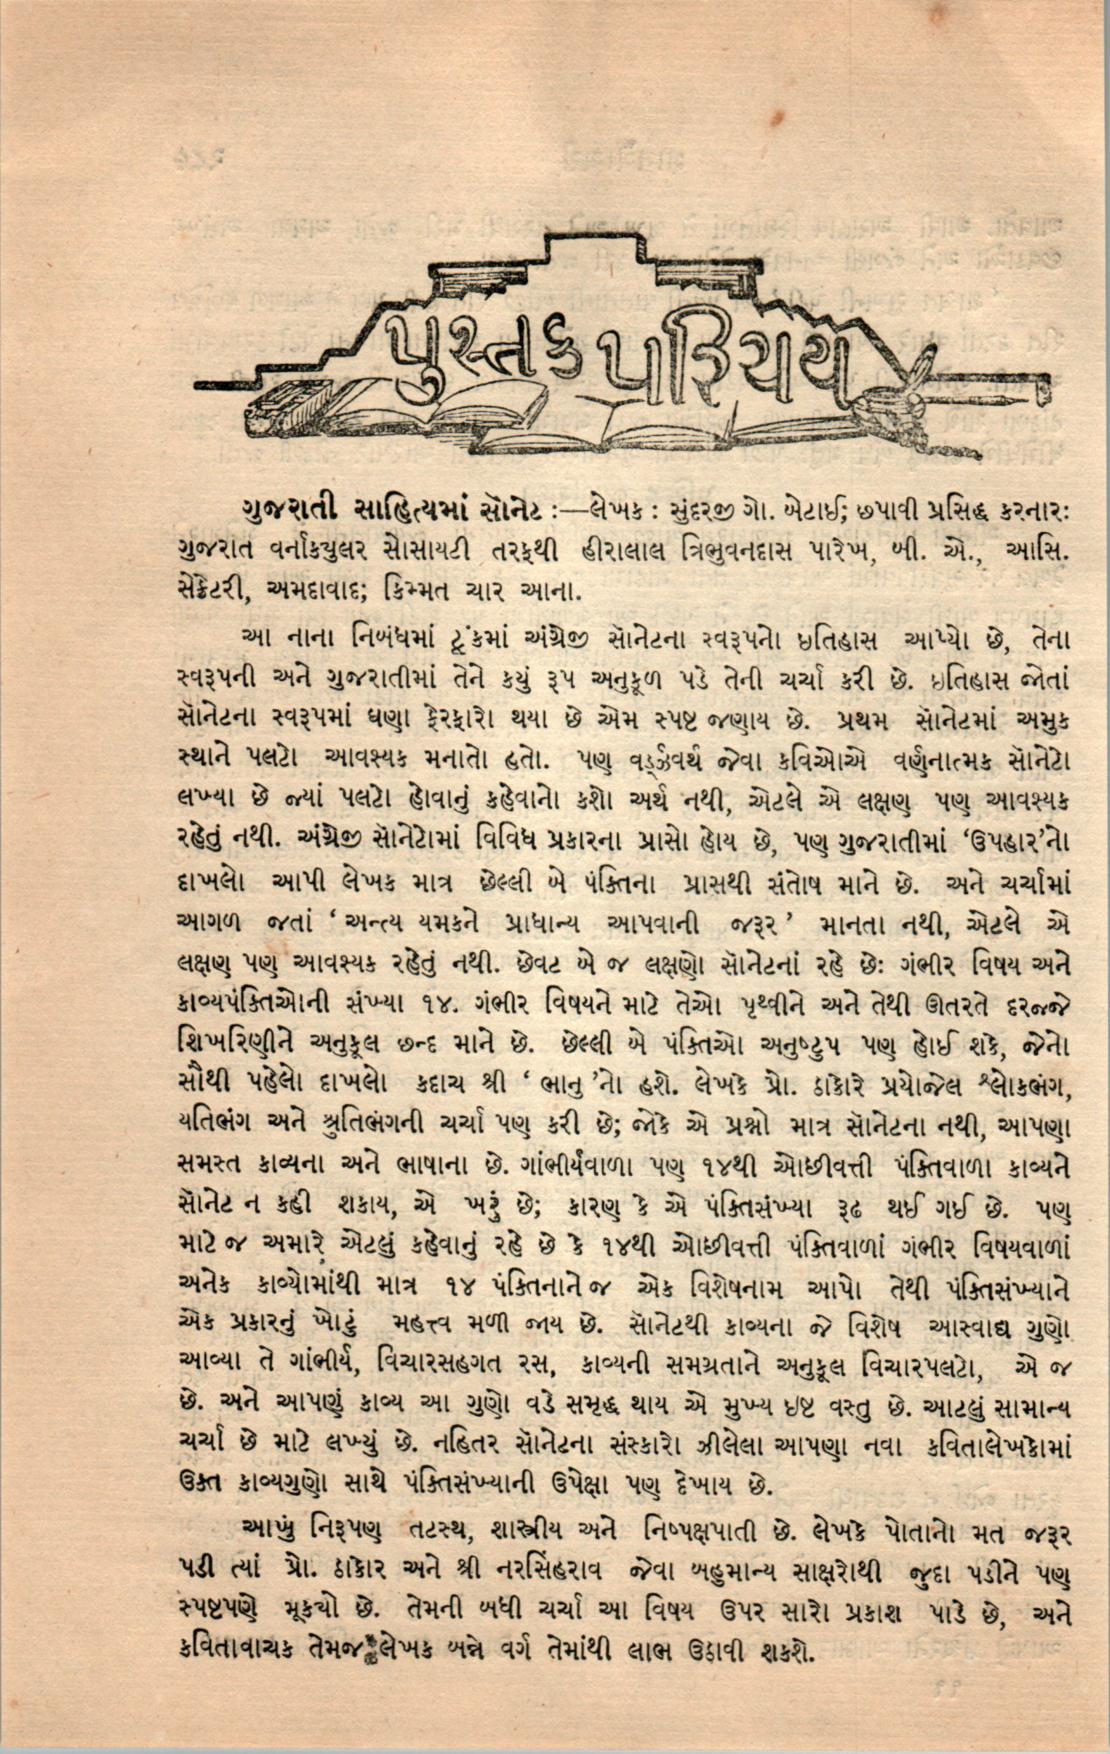 પુસ્તક પરિચય
ગુજરાતી સાહિત્યમાં સૉનેટ :—લેખક : સુંદરજી ગો. બેટાઈ; છપાવી પ્રસિદ્ધ કરનારઃ
ગુજરાત વર્નાક્યુલર સોસાયટી તરફથી હીરાલાલ ત્રિભુવનદાસ પારેખ, બી. એ., આસિ.
સેક્રેટરી, અમદાવાદ; કિમ્મત ચાર આના.
આ નાના નિબંધમાં ટૂંકમાં અંગ્રેજી સૉનેટના સ્વરૂપનો ઇતિહાસ આપ્યો છે, તેના
સ્વરૂપની અને ગુજરાતીમાં તેને કયું રૂપ અનુકૂળ પડે તેની ચર્ચા કરી છે. ઇતિહાસ જોતાં
સૉનેટના સ્વરૂપમાં ઘણા ફેરફારો થયા છે એમ સ્પષ્ટ જણાય છે. પ્રથમ સૉનેટમાં અમુક
સ્થાને પલટો આવશ્યક મનાતો હતો. પણ વર્ડ્ઝવર્થ જેવા કવિઓએ વર્ણનાત્મક સૉનેટો
લખ્યા છે જ્યાં પલટો હોવાનું કહેવાનો કશો અર્થ નથી, એટલે એ લક્ષણ પણ આવશ્યક
રહેતું નથી. અંગ્રેજી સૉનેટોમાં વિવિધ પ્રકારના પ્રાસો હોય છે, પણ ગુજરાતીમાં ‘ઉપહાર’નો
દાખલો આપી લેખક માત્ર છેલ્લી બે પંક્તિના પ્રાસથી સંતોષ માને છે. અને ચર્ચામાં
આગળ જતાં ‘ અન્ત્ય યમકને પ્રાધાન્ય આપવાની જરૂર ’ માનતા નથી, એટલે એ
લક્ષણ પણ આવશ્યક રહેતું નથી. છેવટ બે જ લક્ષણો સૉનેટનાં રહે છેઃ ગંભીર વિષય અને
કાવ્યપંક્તિઓની સંખ્યા ૧૪. ગંભીર વિષયને માટે તેઓ પૃથ્વીને અને તેથી ઊતરતે દરજ્જે
શિખરિણીને અનુકૂલ છન્દ માને છે. છેલ્લી બે પંક્તિઓ અનુષ્ટુપ પણ હોઈ શકે, જેનો
સૌથી પહેલો દાખલો કદાચ શ્રી ‘ ભાનુ ’નો હશે. લેખકે પ્રો. ઠાકોરે પ્રયોજેલ શ્લોકભંગ,
યતિભંગ અને શ્રુતિભંગની ચર્ચા પણ કરી છે; જોકે એ પ્રશ્નો માત્ર સૉનેટના નથી, આપણા
સમસ્ત કાવ્યના અને ભાષાના છે. ગાંભીર્યવાળા પણ ૧૪થી ઓછીવત્તી પંક્તિવાળા કાવ્યને
સૉનેટ ન કહી શકાય, એ ખરું છે; કારણ કે એ પંક્તિસંખ્યા રૂઢ થઈ ગઈ છે. પણ
માટે જ અમારે એટલું કહેવાનું રહે છે કે ૧૪થી ઓછીવત્તી પંક્તિવાળાં ગંભીર વિષયવાળાં
અનેક કાવ્યોમાંથી માત્ર ૧૪ પંક્તિનાને જ એક વિશેષનામ આપો તેથી પંક્તિસંખ્યાને
એક પ્રકારનું ખોટું મહત્ત્વ મળી જાય છે. સૉનેટથી કાવ્યના જે વિશેષ આસ્વાદ્ય ગુણો
આવ્યા તે ગાંભીર્ય, વિચારસહગત રસ, કાવ્યની સમગ્રતાને અનુકૂલ વિચારપલટો, એ જ
છે. અને આપણું કાવ્ય આ ગુણો વડે સમૃદ્ધ થાય એ મુખ્ય ઇષ્ટ વસ્તુ છે. આટલું સામાન્ય
ચર્ચા છે માટે લખ્યું છે. નહિતર સૉનેટના સંસ્કારો ઝીલેલા આપણા નવા કવિતાલેખકોમાં
ઉક્ત કાવ્યગુણો સાથે પંક્તિસંખ્યાની ઉપેક્ષા પણ દેખાય છે.
આખું નિરૂપણ તટસ્થ, શાસ્ત્રીય અને નિષ્પક્ષપાતી છે. લેખકે પોતાનો મત જરૂર
પડી ત્યાં પ્રો. ઠાકોર અને શ્રી નરસિંહરાવ જેવા બહુમાન્ય સાક્ષરોથી જુદા પડીને પણ
સ્પષ્ટપણે મૂક્યો છે. તેમની બધી ચર્ચા આ વિષય ઉપર સારો પ્રકાશ પાડે છે, અને
કવિતાવાચક તેમજ લેખક બન્ને વર્ગ તેમાંથી લાભ ઉઠાવી શકશે.